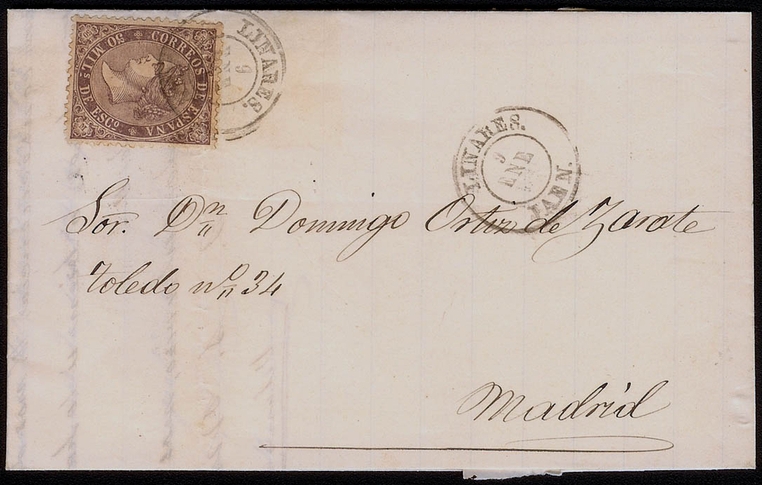 CORREOS DE ESPAÑA
50 MIL.s DE ESC.o
LINARES.
9
ENE
LINARES.
9
ENE
JAEN.
Sor. Dn Domingo Ortiz de Zarate
Toledo no 34
Madrid